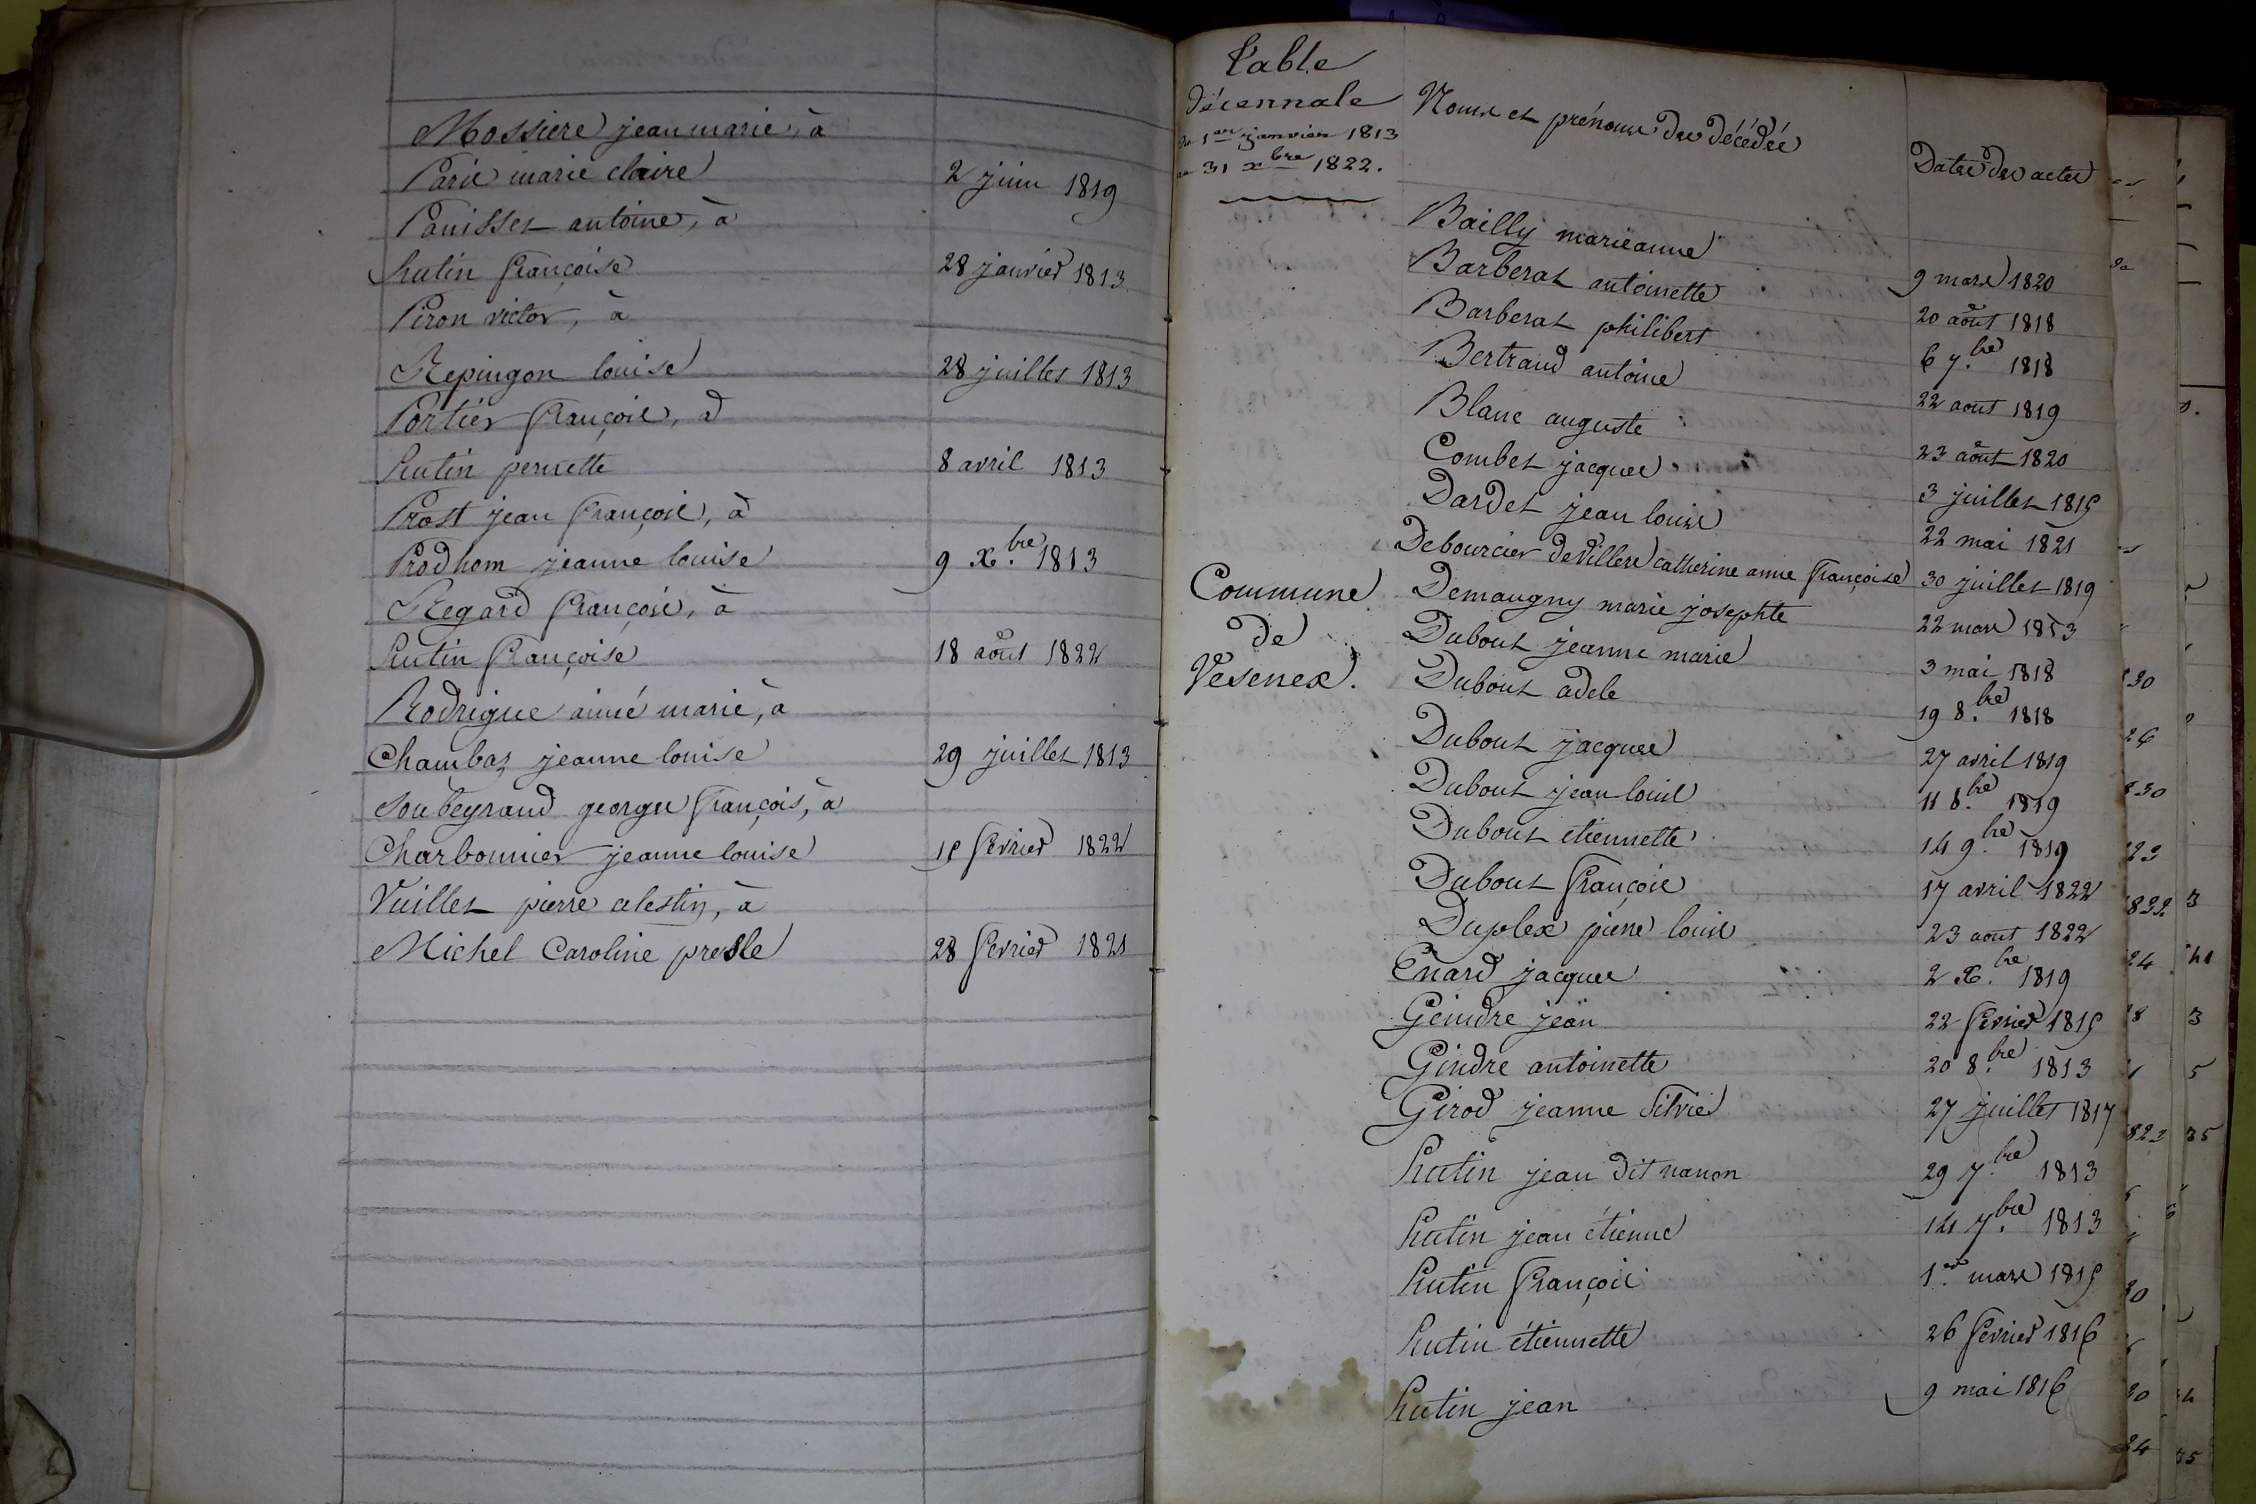 Mossiere jean marie, à
Paris marie claire 2 juin 1819
Panisset antoine, à
hutin françoise 28 janvier 1813
Piron victor, à
Repingon louise 28 juillet 1813
Portier françois, à
hutin pernette 8 avril 1813
Prost jean françois, à
Prodhom jeanne louise 9 Xbre 1813
Regard françois, à
hutin françoise 18 août 1822
Rodrigue aimé marie, à
Chambaz jeanne louise 29 juillet 1813
Soubeyrand george françois, à
Charbonnier jeanne louise février 1822
Vuillet pierre celestin, à
Michel Caroline presle 28 fevrier 1821
Table
décennale
du 1er janvier 1813
au 31 xbre 1822.
Commune
de
Vesenex.
Noms et prénoms des décédés Dates des actes
Bailly marieanne 9 mars 1820
Barberat antoinette 20 août 1818
Barberat philibert 6 7.bre 1818
Bertrand antoine 22 aout 1819
Blanc auguste 23 août 1820
Combet jacques 3 juillet 1815
Dardet jean louis 22 mai 1821
Debourcier de Villers catherine anne françoise 30 juillet 1819
Demaugny marie josephte 22 mars 1813
Dubout jeanne marie 3 mai 1818
Dubout adele 19 8.bre 1818
Dubout jacques 27 avril 1819
Dubout jean louis 11 8.bre 1819
Dubout etiennette 14 9.bre 1819
Dubout françois 17 avril 1822
Duplex pierre louis 23 aout 1822
Enard jacques 2 X.bre 1819
Geindre jean 22 fevrier 1815
Gindre antoinette 20 8.bre 1813
Girod jeanne Silvie 27 juillet 1817
hutin jean dit nanon 29 7.bre 1813
hutin jean étienne 14 7.bre 1813
hutin françois 1er mars 1815
hutin étiennette 26 fevrier 1816
hutin jean 9 mai 1816